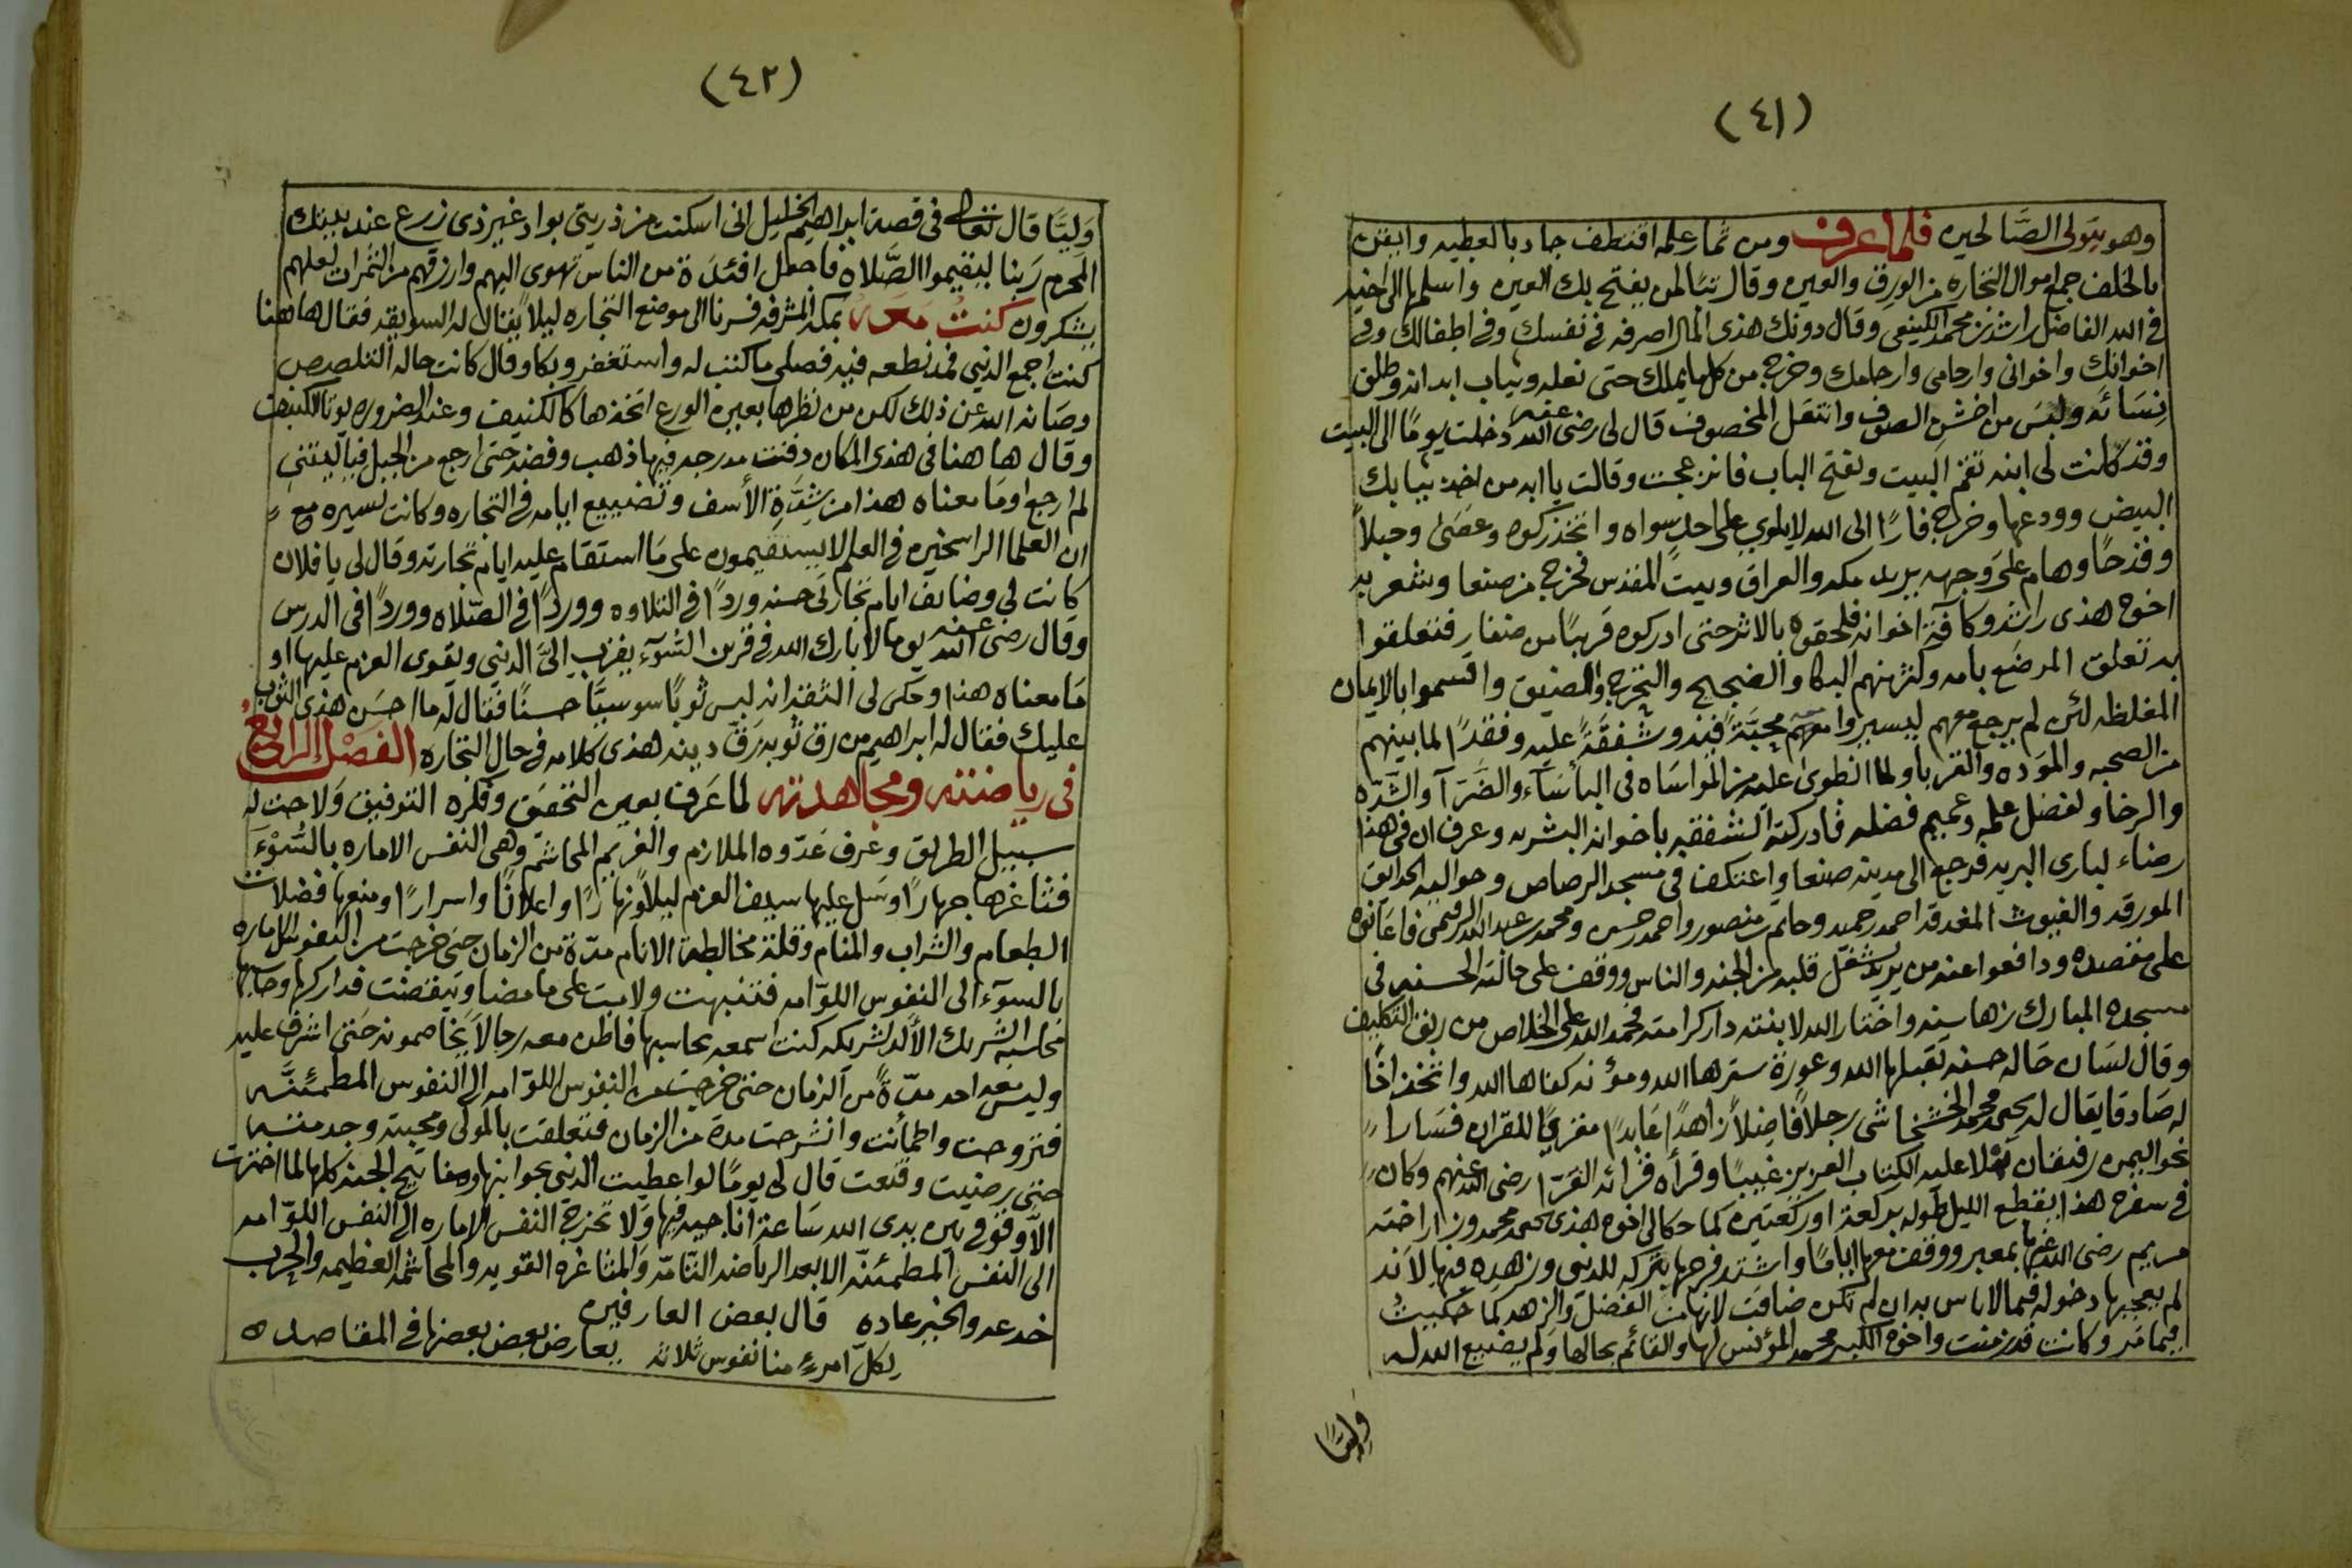 (٤١)
وهو يتولى الصَّالحين فلما عرف ومن ثمار علمه اقتطف جاد بالعطيه وايقن
بالخلف جمع اموال التجاره من الورق والعين وقال
في الله الفاضل راشد بن محمد الكينعي وقال دونك هذى المال اصرفه في نفسك وفي اطفالك وفي
اخوانك واخوانى وارحامى وارحامك وخرج من كل ما يملك حتى نعله وثياب ابدانه وطلق
نِسَائه ولبس من اخشن الصوف وانتعل المخصوف قال لى رضى الله عنه دخلت يومًا الى البيت
وقد كانت لى ابنه تقم البيت وتفتح الباب فانزعجت وقالت يا ابه من اخذ ثيابك
البيض وودعها وخرج فارًا الى الله لا يلوي على احدٍ سواه واتخذ ركوه وعصَى وحبلاً
وقدحًا وهام على وجهه يريد مكه والعراق وبيت المقدس فخرج من صنعا وشعر به
اخوه هذى راشد وكافة اخوانه فلحقوه بالاثر حتى ادركوه قريبًا من ضفار فتعلقوا
به تعلق المرضَع بامه وكثر منهم البكا والضجيج والتخرج والضيق واقسموا بالايمان
المغلظه لئن لم يرجع معهم ليسيروا معه محبَّةً فيه وشفقةً عليه وفقدًا لما بينهم
من الصحبه والموده والقربا ولما انطوى عليه من المواسَاه في البأسَآء والضَرآ والشدّه
والرخا ولفضل علمه وعميم فضله فادركته الشفقه باخوانه البشريه وعرف ان في هذا
رضاء لبارى البريه فرجع الى مدينه صنعا واعتكف في مسجد الرصاص وحواليه الحدايق
المورقه والغيوث المغدقه احمد بن حميد وحاتم بن منصور واحمد بن حسن ومحمد بن عبد الله الرقيمى فاعانوه
على مقصده ودافعوا عنه من يريد شغل قلبه من الجند والناس ووقف على حالته الحسنه في
مسجده المبارك زها سنه واختار الله لابنته دار كرامته فحمد الله على الخلاص من ربق التكليف
وقال لسَان حَاله حسنه تقبلها الله وعورة سترها الله ومؤنه كفاها الله واتخذ اخًا
له صَادقا يقال له يحيى بن محمد الخشخاشى رجلاً فاضِلاً زاهدًا عَابدًا مقريًا للقران فسَارا
نحو اليمن رفيقان تلا عليه الكتاب العزيز غيبًا وقرأه قرائه القرّا رضى الله عنهم وكان
في سفره هذا يقطع الليل طوله بركعة او ركعتين كما حكا لي اخوه هذى يحيى بن محمد وزار اخته
مريم رضى الله عنها بمعبر ووقف معها ايامًا واشتد فرحها بتركه للدنيى وزهده فيها لانه
لم يعجبها دخوله فيما لا باس به ان لم تكن ضاقت لانها من الفضل والزهد كما حكيتُ
فيما مَر وكانت قد زمنت واخوه الكبير محمد المؤنس لها والقائم بحالها ولم يضيع الله له
وَليًّا
(٤٢)
وَليًّا قال تعالى في قصة ابراهيم الخليل انى اسكنت من ذريتى بواد غير ذى زرع عند بيتك
المحرم رَبنا ليقيموا الصَّلاه فاجعل افئدَة من الناس تهوى اليهم وارزقهم من الثمرات لعلهم
يشكرون كنتُ مَعَه بمكه المشرفه فسرنا الى موضع التجاره ليلاً يقال له السويقه فقال ها هنا
كنت اجمع الدنيى فمد نطعه فيه فصلى ما كتب له واستغفر وبكا وقال كانت حاله التلصص
وصَانه الله عن ذلك لكن من نظرها بعين الورع اتخذها كالكنيف وعند الضروره يؤتا الكنيف
وقال ها هنا في هذى المكان دفنت مدرجه فيها ذهب وفضه حتى ارجع من الجبل فياليتنى
لم ارجع او مَا معناه هذا من شِدَّةِ الأسف وتضييع ايامه في التجاره وكانت لسيره مع
ان العلما الراسخين في العلم لا يستقيمون على مَا استقام عليه ايام تجارته وقال لى يا فلان
كانت لي وضايف ايام تجارتى حسنه وردًا في التلاوه ووردًا في الصّلاه ووردًا في الدرس
وقال رضى الله عنه يوما لا بارك الله في قرين السّوء يقرّب الىَّ الدنيى ويقوى العزم عليها او
مَا معناه هذا وحكى لى الثقه انه لبس ثوبًا سوسيًّا حسنًا فقال له ما احسَن هذى الثوب
عليك فقال له ابراهيم من رق ثوبه رَقّ دينه هذى كلامه في حال التجاره الفصْل الرابع
فى رياضته ومجاهدته لما عَرف بعين التحقيق وفكره التوفيق وَلاحت له
سبيل الطريق وعَرف عَدّوه الملازم والغريم المحاشم وهى النفس الاماره بالسُوْءِ
فشاغرها جهارًا وسَل عليها سيف العزم ليلاً ونهارًا واعلانًا واسرارًا ومنعها فضلات
الطعام والشراب والمنام وقلة مخالطة الانام مدّة من الزمان حتى خرجت من النفوس الاماره
بالسوَء الى النفوس اللوّامه فتنبهت ولامت على ما مضا وتيقضت فداركها وحاسبها
محاسبة الشريك الألد لشريكه كنت اسمعه يحاسبها فاظن معه رجالاً يخاصمونه حَتى اشرف عليه
وليس معه احد مدّةً من الزمان حتى خرجت من النفوس اللوّامه الى النفوس المطمئنَّه
فتروحت واطمأنت وانشرحت مدة من الزمان فتعلقت بالمولى ومحبته وجد منته
حتى رضيت وقنعت قال لى يومًا لو اعطيت الدنيى بجوانبها ومفاتيح الجنه كلها لما اخترت
الاّ وقوفى بين يدى الله سَاعة اناجيه فيها وَلا تخرج النفس الاماره الى النفس اللوّامه
الى النفس المطمئنّه الا بعد الرياضه التّامّه وَالمشاغره القويه والمحاشمه العظيمه والحرب
خدعه والخير عاده قال بعض العارفين
لكلّ امرءٍ منا نفوس ثلاثه يعارض بعض بعضها في المقاصد ه